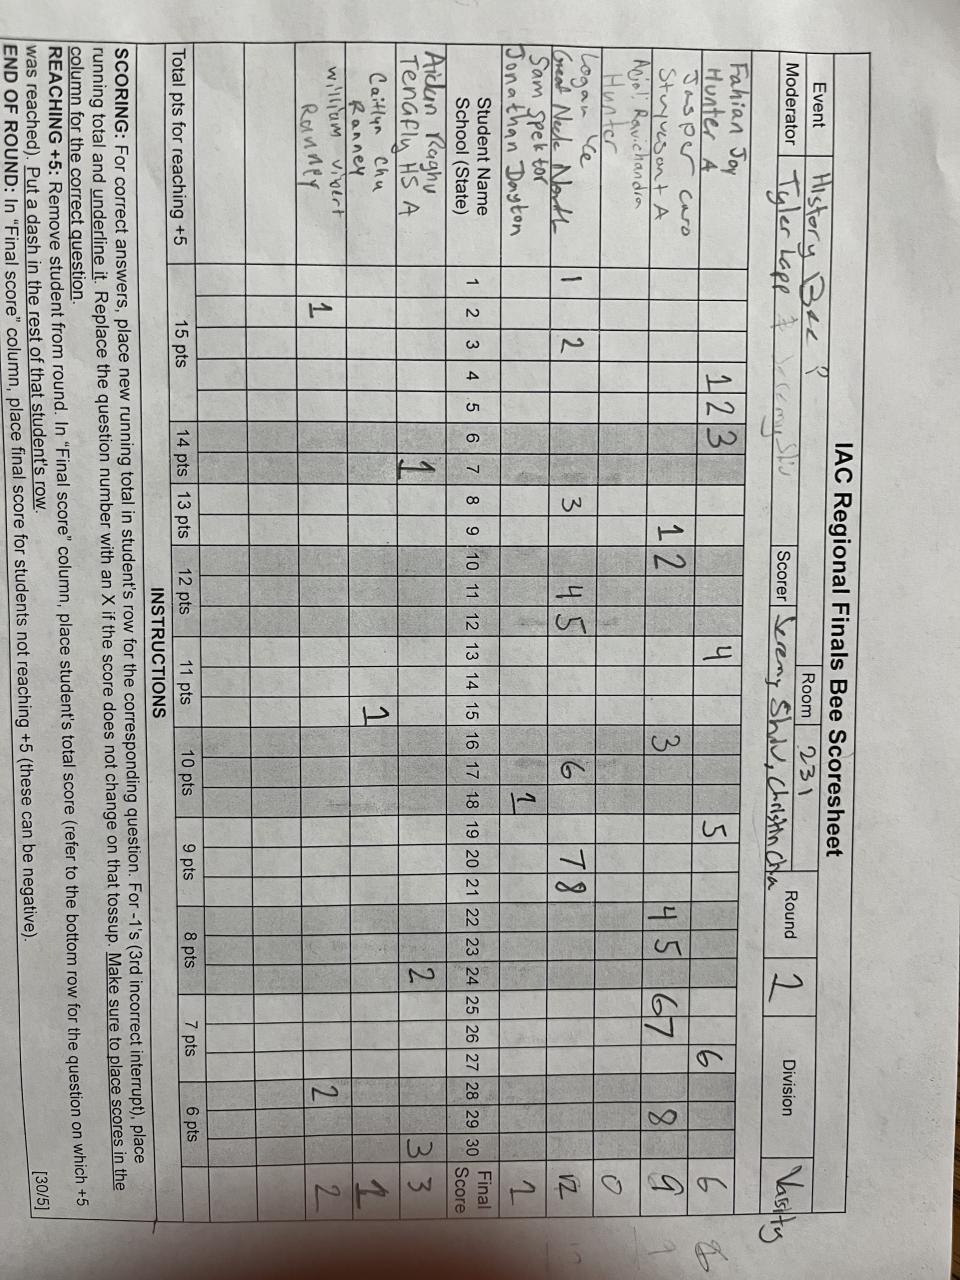 IAC Regional Finals Bee Scoresheet
Event History Bee ? Room 231 Round 1 Division Varsity
Moderator Tyler Scorer Jeremy
Fahian Jay
Hunter A 1 2 3 4 5 6 6
Jasper caro
Stuyvesant A 1 2 3 4 5 6 7 8 9
Anjali Ravichandra
Hunter 0
Logan Lee
Great Neck North 1 2 3 4 5 6 7 8 12
Sam Spektor
Jonathan Dayton 1 1
Student Name
School (State) 1 2 3 4 5 6 7 8 9 10 11 12 13 14 15 16 17 18 19 20 21 22 23 24 25 26 27 28 29 30 Final Score
Aiden Raghu
Tenafly HS A 1 2 3 3
Caitlyn Chu
Ranney 1 1
William Vibert
Ranney 1 2 2
Total pts for reaching +5 15 pts 14 pts 13 pts 12 pts 11 pts 10 pts 9 pts 8 pts 7 pts 6 pts
INSTRUCTIONS
SCORING: For correct answers, place new running total in student's row for the corresponding question. For -1's (3rd incorrect interrupt), place
running total and underline it. Replace the question number with an X if the score does not change on that tossup. Make sure to place scores in the
column for the correct question.
REACHING +5: Remove student from round. In "Final score" column, place student's total score (refer to the bottom row for the question on which +5
was reached). Put a dash in the rest of that student's row.
END OF ROUND: In "Final score" column, place final score for students not reaching +5 (these can be negative).
[30/5]